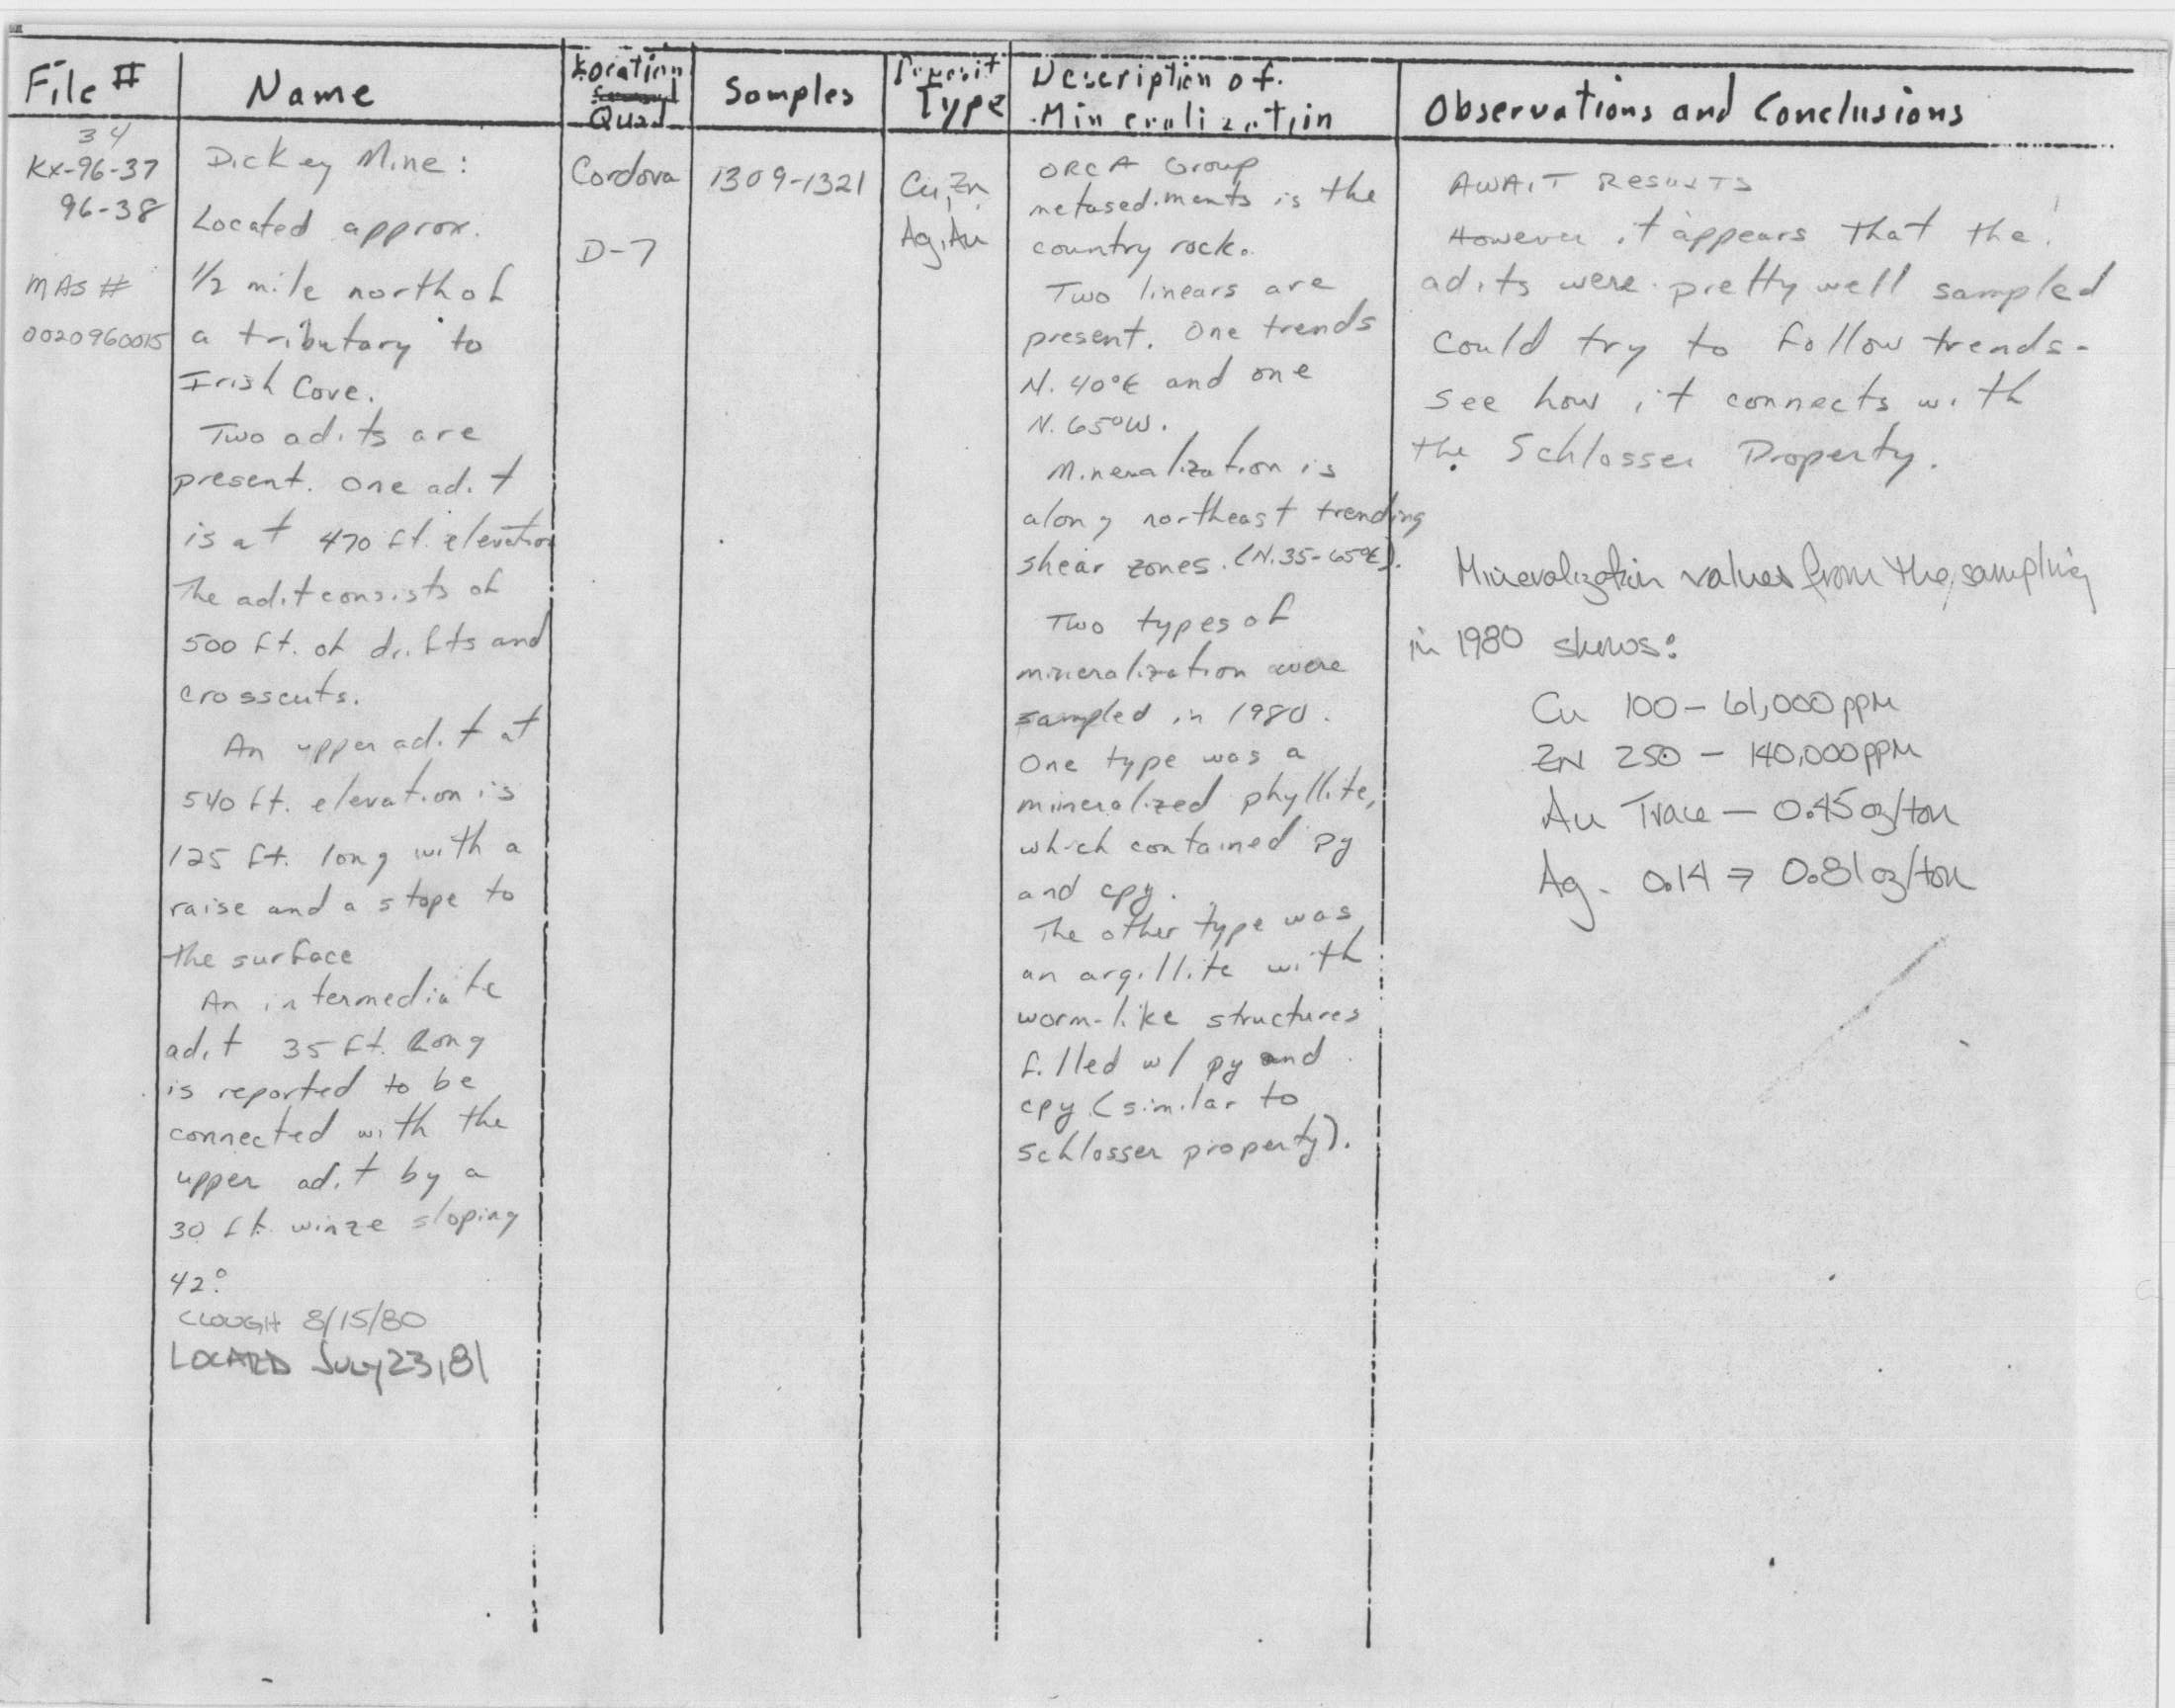 File #
Name
Location
Quad
Samples
Deposit
Type
Description of
Mineralization
Observations and Conclusions
34
KX-96-37
96-38
MAS #
0020960015
Dickey Mine:
Located approx.
1/2 mile north of
a tributary to
Irish Cove.
Two adits are
present. One adit
is at 470 ft. elevation
The adit consists of
500 ft. of drifts and
crosscuts.
An upper adit at
540 ft. elevation is
125 ft. long with a
raise and a stope to
the surface
An intermediate
adit 35 ft. Long
is reported to be
connected with the
upper adit by a
30 ft. winze sloping
42°
CLOUGH 8/15/80
July 23, 81
Cordova
D-7
1309-1321
Cu, Zn
Ag, Au
ORCA Group
metasediments is the
country rock.
Two linears are
present. One trends
N. 40°E and one
N. 65°W.
Mineralization is
along northeast trending
shear zones. (N.35-65°E).
Two types of
mineralization were
sampled in 1980.
One type was a
mineralized phyllite,
which contained py
and cpy.
The other type was
an argillite with
worm-like structures
filled w/ py and
cpy (similar to
Schlosser property).
AWAIT RESULTS
However it appears that the
adits were pretty well sampled
Could try to follow trends-
see how it connects with
the Schlosser Property.
Mineralization values from the sampling
in 1980 shows:
Cu 100 - 61,000 ppm
ZN 250 - 140,000 ppm
Au Trace - 0.45 oz/ton
Ag - 0.14 → 0.81 oz/ton